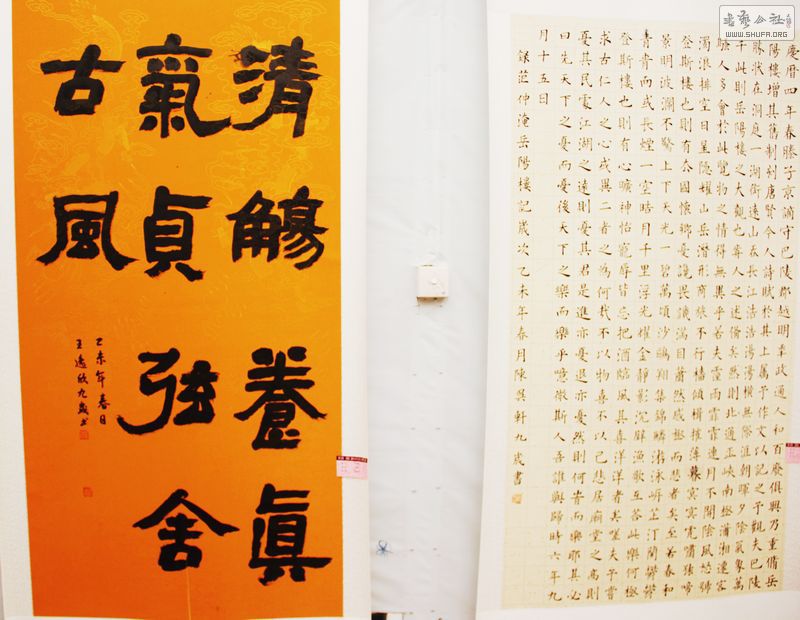 書藝公社
WWW.SHUFA.ORG
清觴養眞
氣貞弦舍
古風
乙未年春日
王逸欣九歲书
慶曆四年春滕子京謫守巴陵郡越明年政通人和百廢俱興乃重脩岳
陽樓增其舊制刻唐賢今人詩賦於其上屬予作文以記之予觀夫巴陵
勝狀在洞庭一湖銜遠山吞長江浩浩湯湯橫無際涯朝暉夕陰氣象萬
千此則岳陽樓之大觀也前人之述備矣然則北通巫峽南極瀟湘遷客
騷人多會於此覽物之情得無異乎若夫霪雨霏霏連月不開陰風怒號
濁浪排空日星隱耀山岳潛形商旅不行檣傾楫摧薄暮冥冥虎嘯猿啼
登斯樓也則有去國懷鄉憂讒畏譏滿目蕭然感極而悲者矣至若春和
景明波瀾不驚上下天光一碧萬頃沙鷗翔集錦鱗游泳岸芷汀蘭鬱鬱
青青而或長煙一空皓月千里浮光耀金靜影沉璧漁歌互答此樂何極
登斯樓也則有心曠神怡寵辱皆忘把酒臨風其喜洋洋者矣嗟夫予嘗
求古仁人之心或異二者之為何哉不以物喜不以己悲居廟堂之高則
憂其民處江湖之遠則憂其君是進亦憂退亦憂然則何時而樂耶其必
曰先天下之憂而憂後天下之樂而樂乎噫微斯人吾誰與歸時六年九
月十五日
錄范仲淹岳陽樓記歲次乙未年春月陳奕軒九歲書